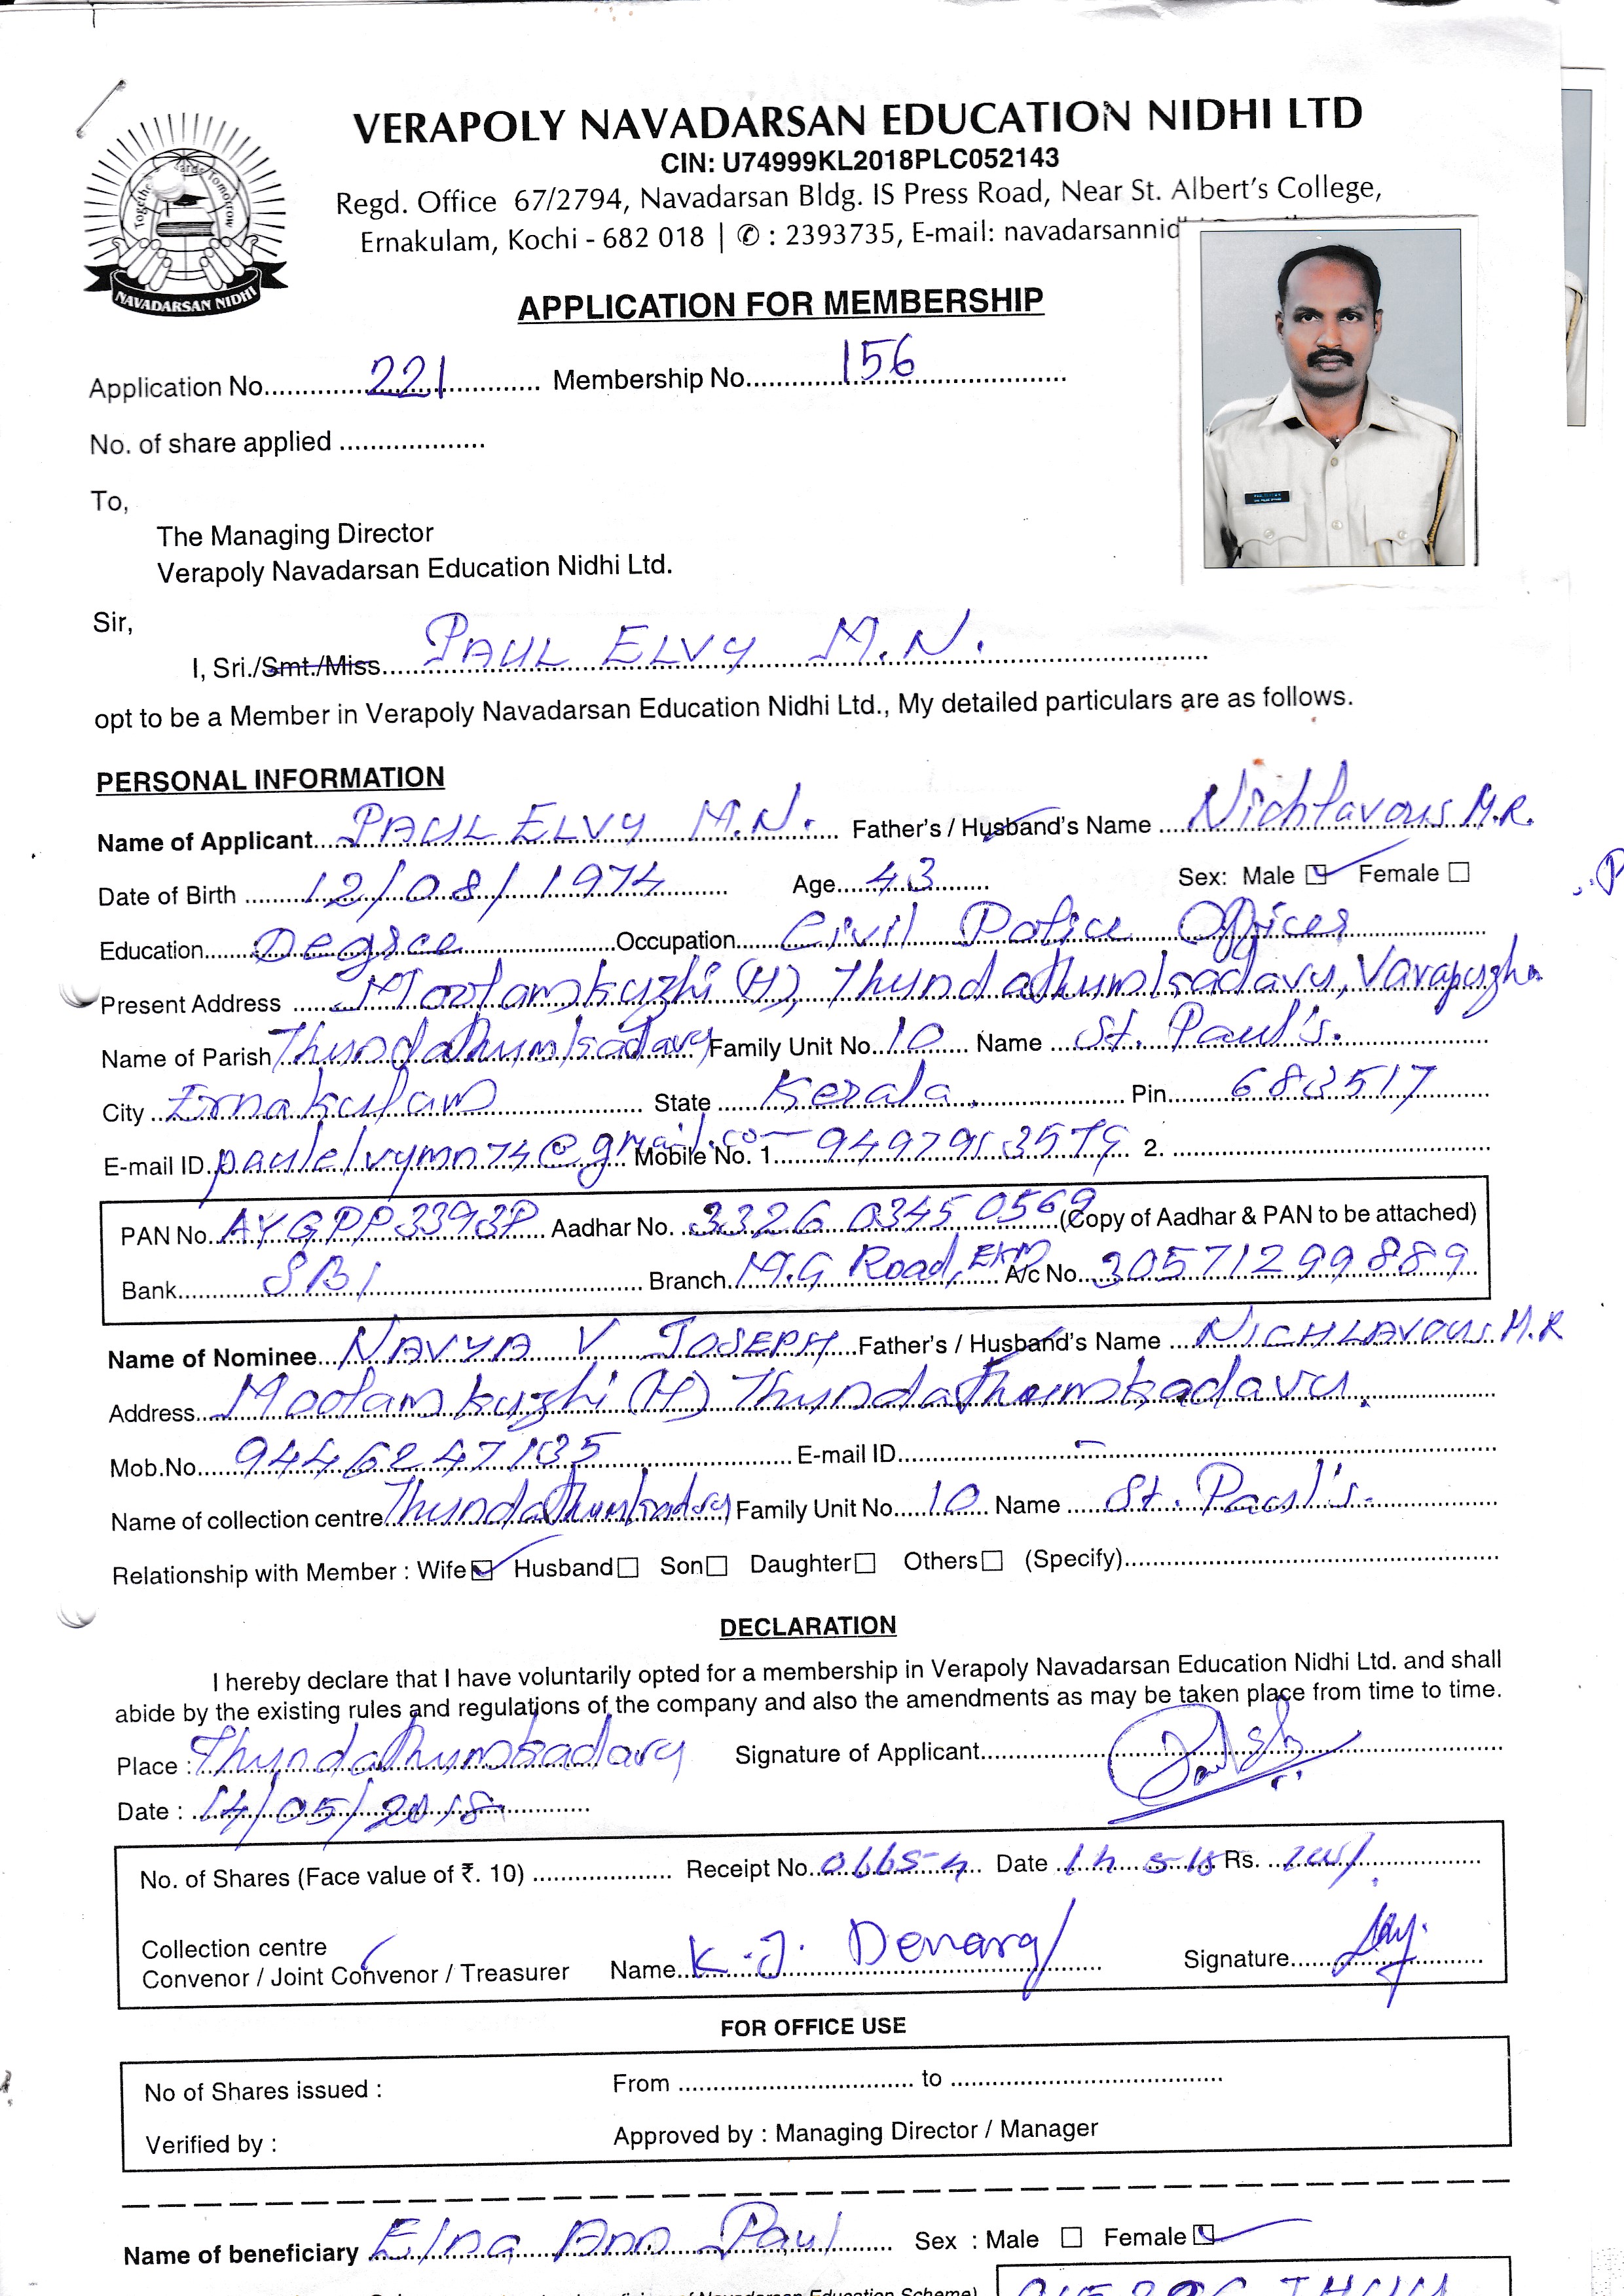 VERAPOLY NAVADARSAN EDUCATION NIDHI LTD
CIN: U74999KL2018PLC052143
Regd. Office 67/2794, Navadarsan Bldg. IS Press Road, Near St. Albert's College,
Ernakulam, Kochi - 682 018 | ✆ : 2393735, E-mail: navadarsannid
Together Towards Tomorrow
NAVADARSAN NIDHI
APPLICATION FOR MEMBERSHIP
Application No. 221 Membership No. 156
No. of share applied
To,
The Managing Director
Verapoly Navadarsan Education Nidhi Ltd.
Sir,
I, Sri./Smt./Miss. PAUL ELVY M.N.
opt to be a Member in Verapoly Navadarsan Education Nidhi Ltd., My detailed particulars are as follows.
PERSONAL INFORMATION
Name of Applicant. PAUL ELVY M.N. Father's / Husband's Name Nichlavous M.R.
Date of Birth 12/08/1974 Age 43 Sex: Male ☑ Female ☐
Education Degree Occupation Civil Police Officer
Present Address Moolamkuzhi (H), Thundathumkadavu, Varapuzha
Name of Parish Thundathumkadavu Family Unit No. 10 Name St. Paul's.
City Ernakulam State Kerala. Pin 683517
E-mail ID. paulelvymn74@gmail.com Mobile No. 1. 9497913579 2.
PAN No. AYGPP3393P Aadhar No. 3326 0345 0569 (Copy of Aadhar & PAN to be attached)
Bank SBI Branch M.G Road, EKM A/c No. 30571299889
Name of Nominee NAVYA V JOSEPH Father's / Husband's Name NICHLAVOUS M.R
Address Moolamkuzhi (H) Thundathumkadavu.
Mob.No. 9446247135 E-mail ID -
Name of collection centre Thundathumkadavu Family Unit No. 10 Name St. Paul's.
Relationship with Member : Wife ☑ Husband ☐ Son ☐ Daughter ☐ Others ☐ (Specify)
DECLARATION
I hereby declare that I have voluntarily opted for a membership in Verapoly Navadarsan Education Nidhi Ltd. and shall
abide by the existing rules and regulations of the company and also the amendments as may be taken place from time to time.
Place : Thundathumkadavu Signature of Applicant
Date : 14/05/2018
No. of Shares (Face value of ₹. 10) Receipt No. Date 14 5-18 Rs.
Collection centre
Convenor / Joint Convenor / Treasurer Name K.J. Signature
FOR OFFICE USE
No of Shares issued : From to
Verified by : Approved by : Managing Director / Manager
Name of beneficiary Elna Ann Paul Sex : Male ☐ Female ☑